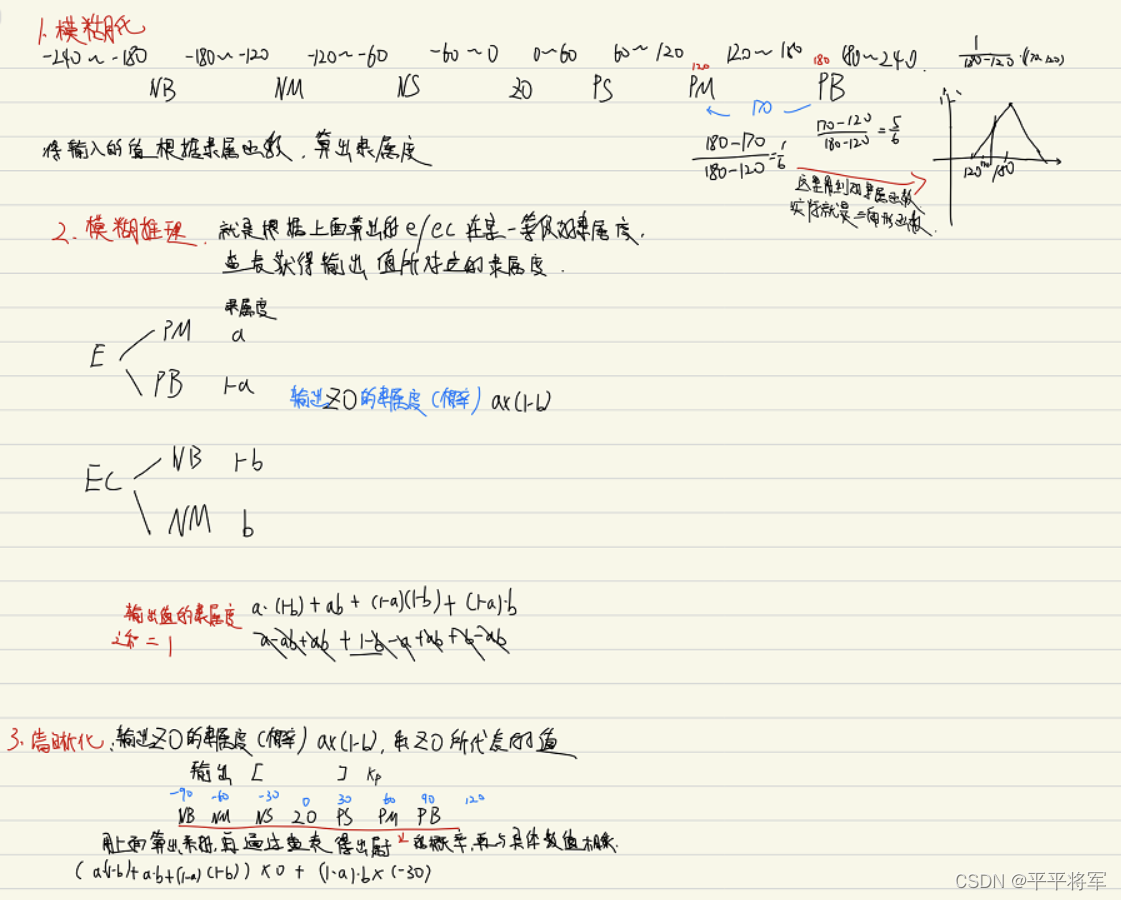 1. 模糊化
-240～-180 -180～-120 -120～-60 -60～0 0～60 60～120 120～180 180～240.
NB NM NS ZO PS PM PB
120 180
170
将输入的值根据隶属函数,算出隶属度
180-170 / 180-120 = 1/6
170-120 / 180-120 = 5/6
120 170 180
这里用到的隶属函数
实际就是三角形函数.
2. 模糊推理. 就是根据上面算出的e/ec在某一等级的隶属度,
查表获得输出值所对应的隶属度.
隶属度
E PM a
PB 1-a
输出ZO的隶属度(概率) a×(1-b)
EC NB 1-b
NM b
输出值的隶属度 a·(1-b)+ab+(1-a)(1-b)+(1-a)·b
之和=1 a-ab+ab+1-b-a+ab+b-ab
3. 清晰化. 输出ZO的隶属度(概率) a×(1-b), 乘ZO所代表的值
输出 [ ] Kp
-90 -60 -30 0 30 60 90 120
NB NM NS ZO PS PM PB
用上面算出来的,再通过查表得出属于 的概率,再与具体数值相乘.
(a(1-b)+a·b+(1-a)(1-b))×0+(1-a)·b×(-30)
CSDN @平平将军